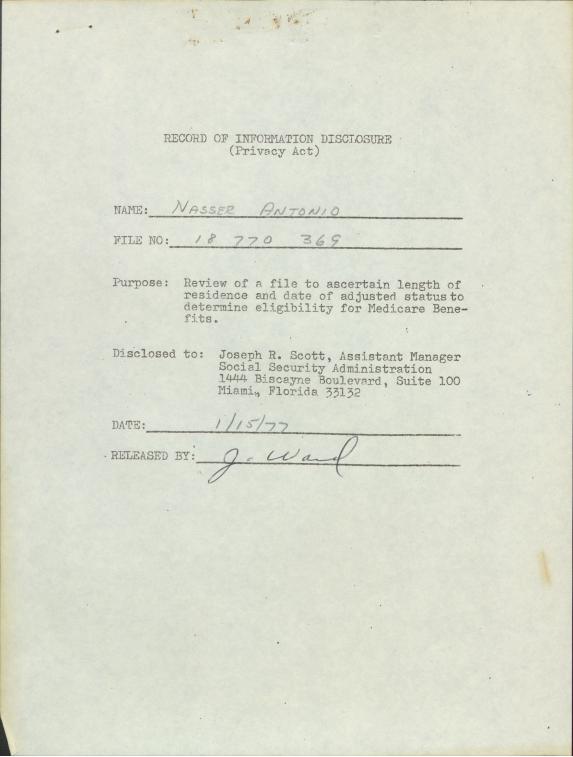 RECORD OF INFORMATION DISCLOSURE
(Privacy Act)
NAME: NASSER ANTONIO
FILE NO: 18 770 369
Purpose: Review of a file to ascertain length of
residence and date of adjusted status to
determine eligibility for Medicare Bene-
fits.
Disclosed to: Joseph R. Scott, Assistant Manager
Social Security Administration
1444 Biscayne Boulevard, Suite 100
Miami, Florida 33132
DATE: 1/15/77
RELEASED BY: J. Ward